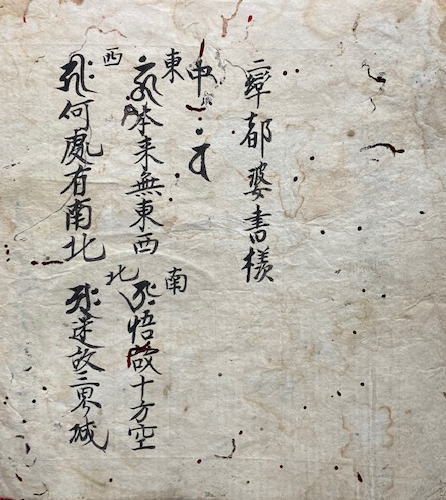 率都婆書様
中
東
本来無東西
南
悟故十方空
西
何處有南北
北
迷故三界城